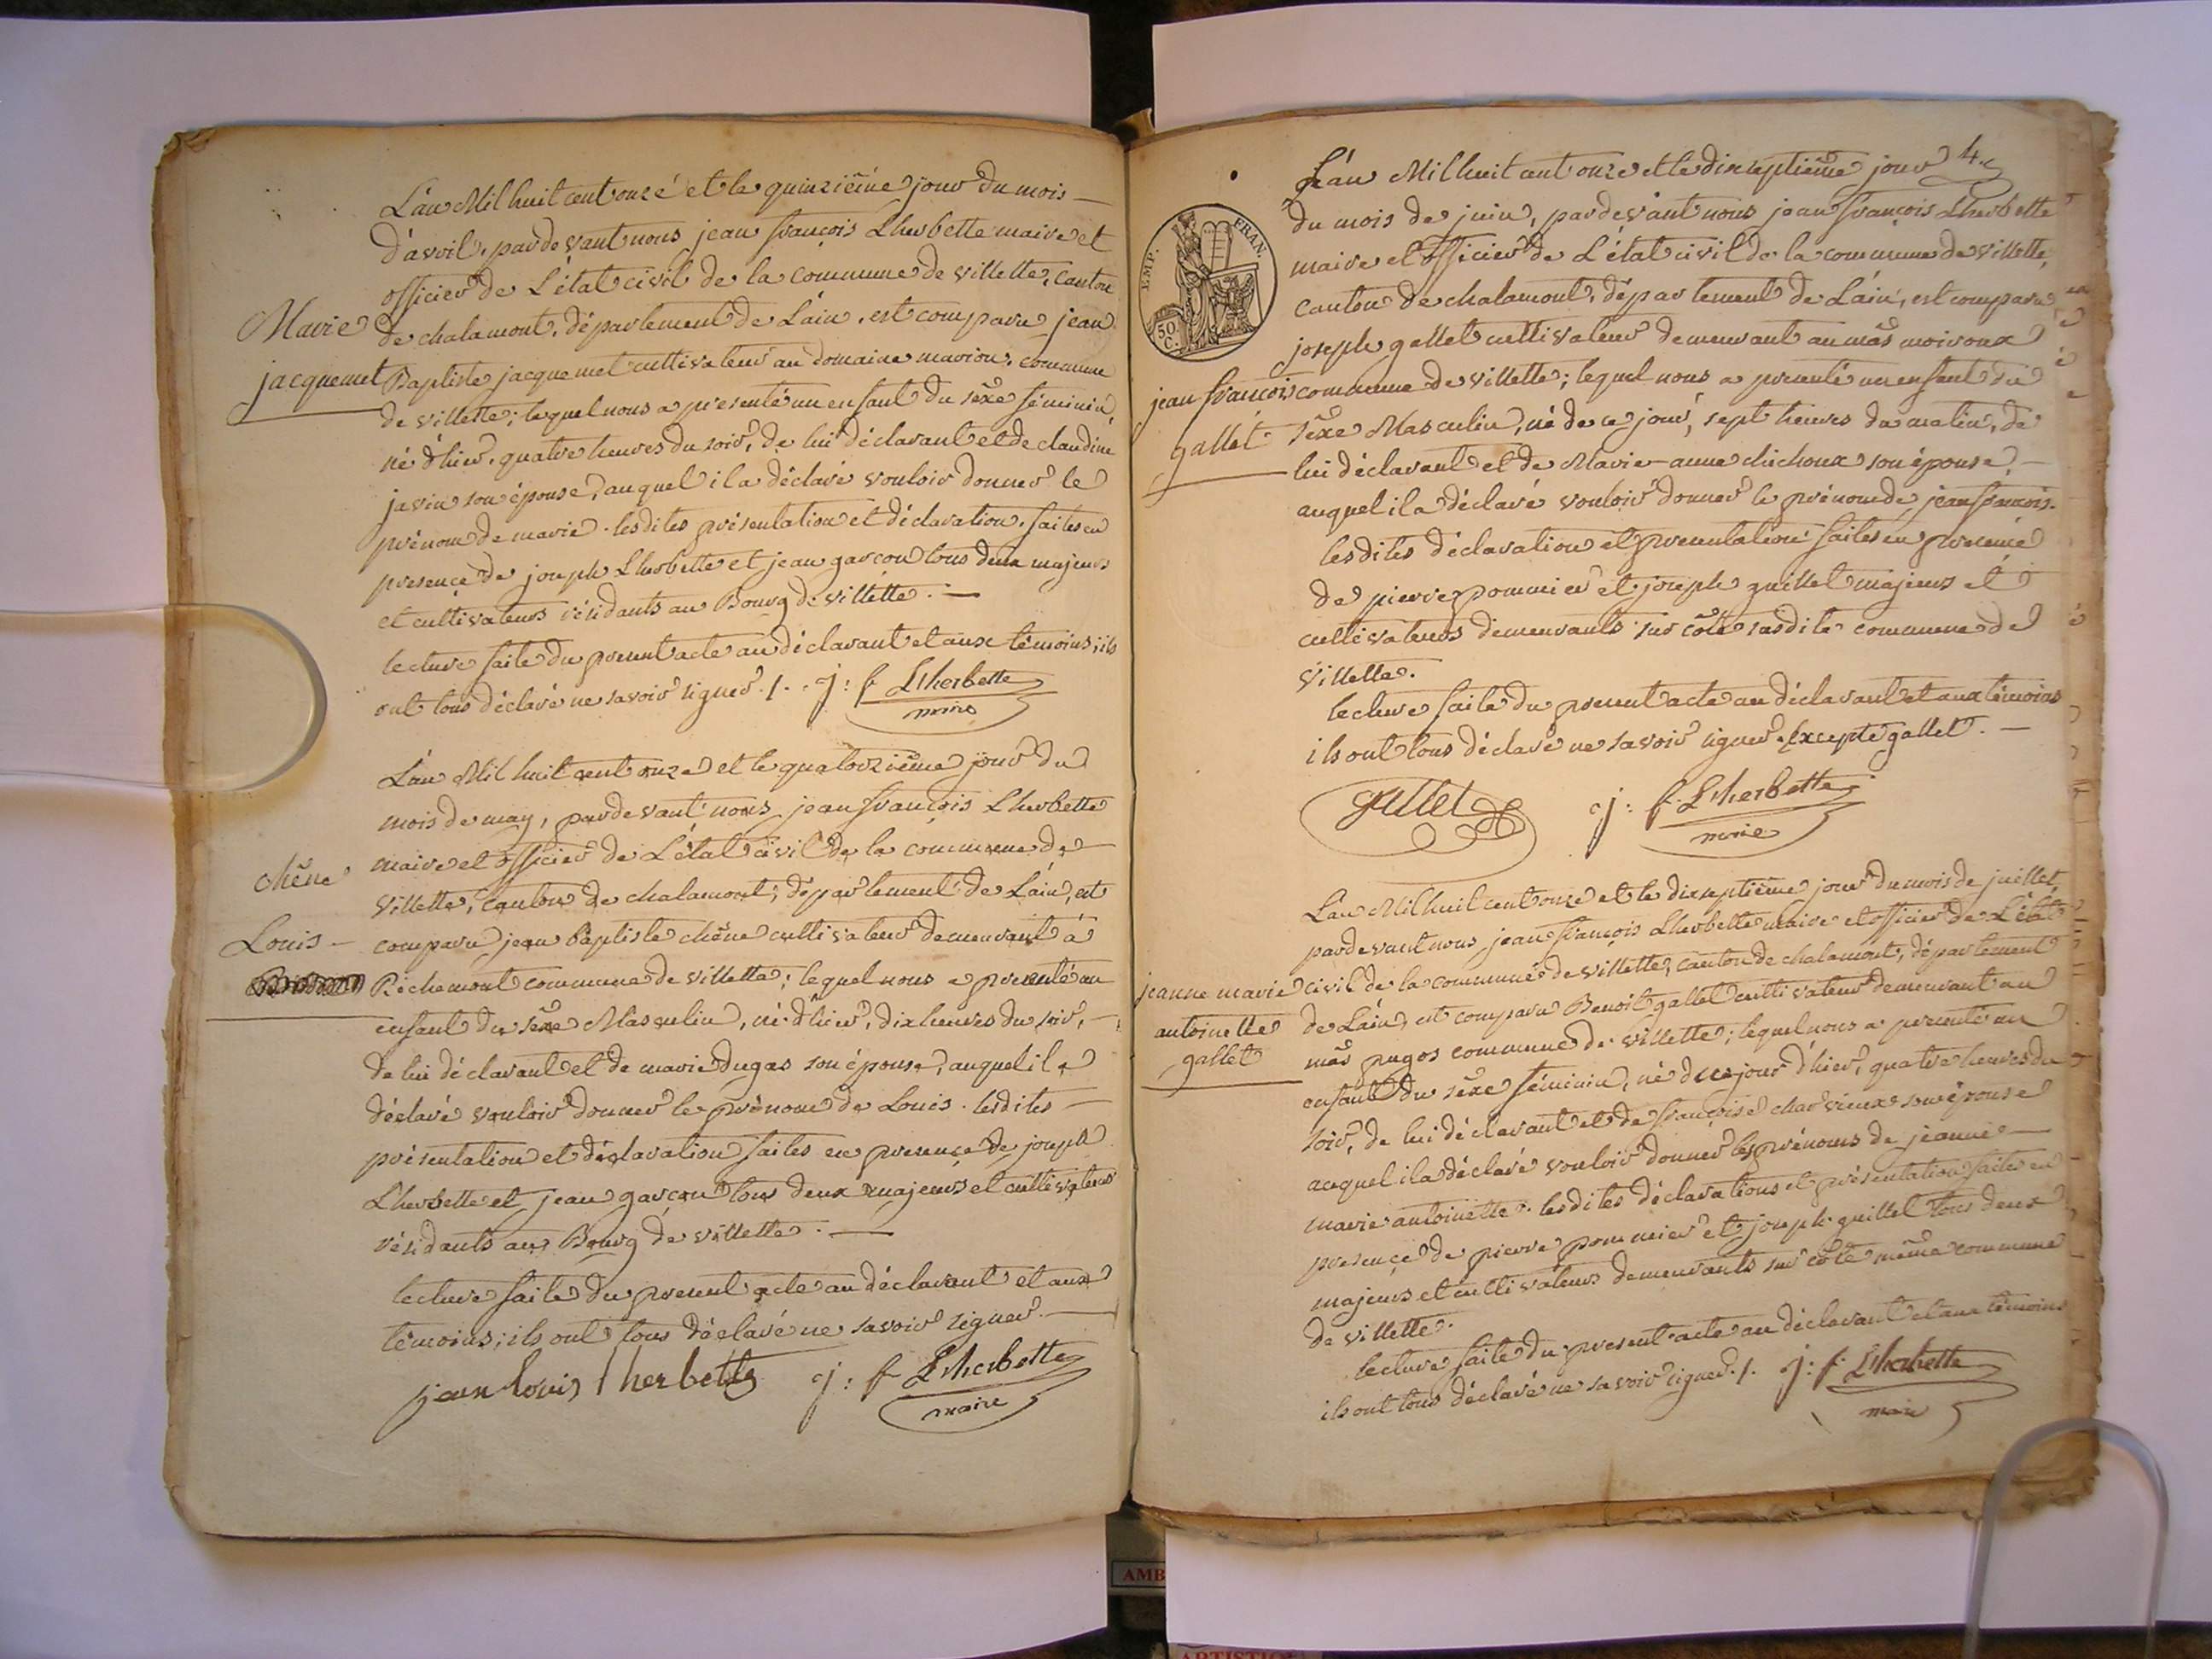 L'an Mil huit cent onze et le quinzième jour du mois
d'avril, pardevant nous jean françois Lherbette maire et
officier de L'état civil de la commune de villette, canton
Marie
de chalamont, département de L'ain, est comparu jean
jacquemet
Baptiste jacquemet cultivateur au domaine marion, commune
de villette; lequel nous a presenté un enfant du séxe féminin,
né d'hier, quatre heures du soir, de lui déclarant et de claudine
javin son épouse, auquel il a déclaré vouloir donner le
prénom de marie. lesdites présentation et déclaration, faites en
presence de joseph Lherbette et jean garçon tous deux majeurs
et cultivateurs résidants au Bourg de villette.
lecture faite du present acte au déclarant et aux témoins; ils
ont tous déclaré ne savoir signer ./. j: f Lherbette
maire
L'an Mil huit cent onze et le quatorzième jour du
mois de may, pardevant nous jean françois Lherbette
chêne
maire et officier de L'état civil de la commune de
villette, canton de chalamont; département de L'ain, est
Louis
comparu jean baptiste chêne cultivateur demeurant à
Richemont commune de villette; lequel nous a presenté un
enfant du séxe Masculin, né d'hier, dix heures du soir,
de lui déclarant et de marie dugas son épouse, auquel il a
déclaré vouloir donner le prénom de Louis. lesdites
présentation et déclaration faites en presence de joseph
Lherbette et jean garçon tous deux majeurs et cultivateurs
résidants au Bourg de villette.
lecture faite du present acte au déclarant et aux
témoins; ils ont tous déclaré ne savoir signer
jean louis lherbette j: f Lherbette
maire
4.
L'an Mil huit cent onze et le dixseptième jour
du mois de juin, pardevant nous jean françois Lherbette
maire et officier de L'état civil de la commune de villette,
EMP. FRAN.
50 C.
canton de chalamont, département de L'ain, est comparu
joseph gallet cultivateur demeurant au mas moiroux
jean françois
commune de villette; lequel nous a presenté un enfant du
gallet
séxe Masculin, né de ce jour, sept heures du matin, de
lui déclarant et de Marie-anne chichoux son épouse,
auquel il a déclaré vouloir donner le prénom de jean françois.
lesdites déclaration et presentation faites en presence
de pierre pommier et joseph guillet majeurs et
cultivateurs demeurants sur côte susdite commune de
villette.
lecture faite du present acte au déclarant et aux témoins
ils ont tous déclaré ne savoir signer. Excepté gallet.
gallet j: f. Lherbette
maire
L'an Mil huit cent onze et le dixseptième jour du mois de juillet,
pardevant nous jean françois Lherbette maire et officier de L'état
jeanne marie
civil de la commune de villette, canton de chalamont, département
antoinette
de L'ain, est comparu Benoit gallet cultivateur demeurant au
gallet
mas pugos commune de villette; lequel nous a presenté un
enfant du séxe féminin, né jour d'hier, quatre heures du
soir, de lui déclarant et de françoise charvieux son épouse
auquel il a déclaré vouloir donner les prénoms de jeanne
marie antoinette. lesdites déclarations et présentation faites en
presence de pierre pommier et joseph guillet tous deux
majeurs et cultivateurs demeurants sur côte même commune
de villette.
lecture faite du present acte au déclarant et aux témoins
ils ont tous déclaré ne savoir signer ./. j: f. Lherbette
maire
AMB
ARTISTIQ